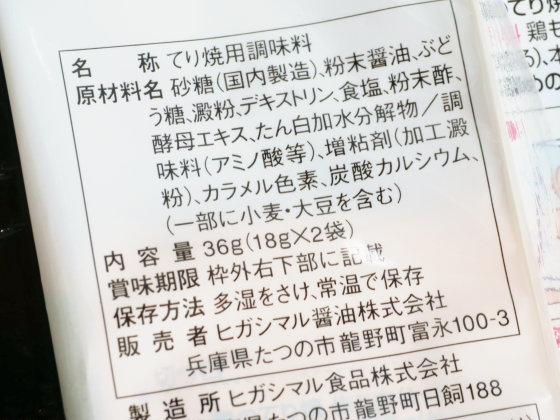 名称 てり焼用調味料
原材料名 砂糖(国内製造)、粉末醤油、ぶど
う糖、澱粉、デキストリン、食塩、粉末酢、
酵母エキス、たん白加水分解物/調
味料(アミノ酸等)、増粘剤(加工澱
粉)、カラメル色素、炭酸カルシウム、
(一部に小麦・大豆を含む)
内容量 36g(18g×2袋)
賞味期限 枠外右下部に記載
保存方法 多湿をさけ、常温で保存
販売者 ヒガシマル醤油株式会社
兵庫県たつの市龍野町富永100-3
製造所 ヒガシマル食品株式会社
兵庫県たつの市龍野町日飼188
てり焼
鶏も